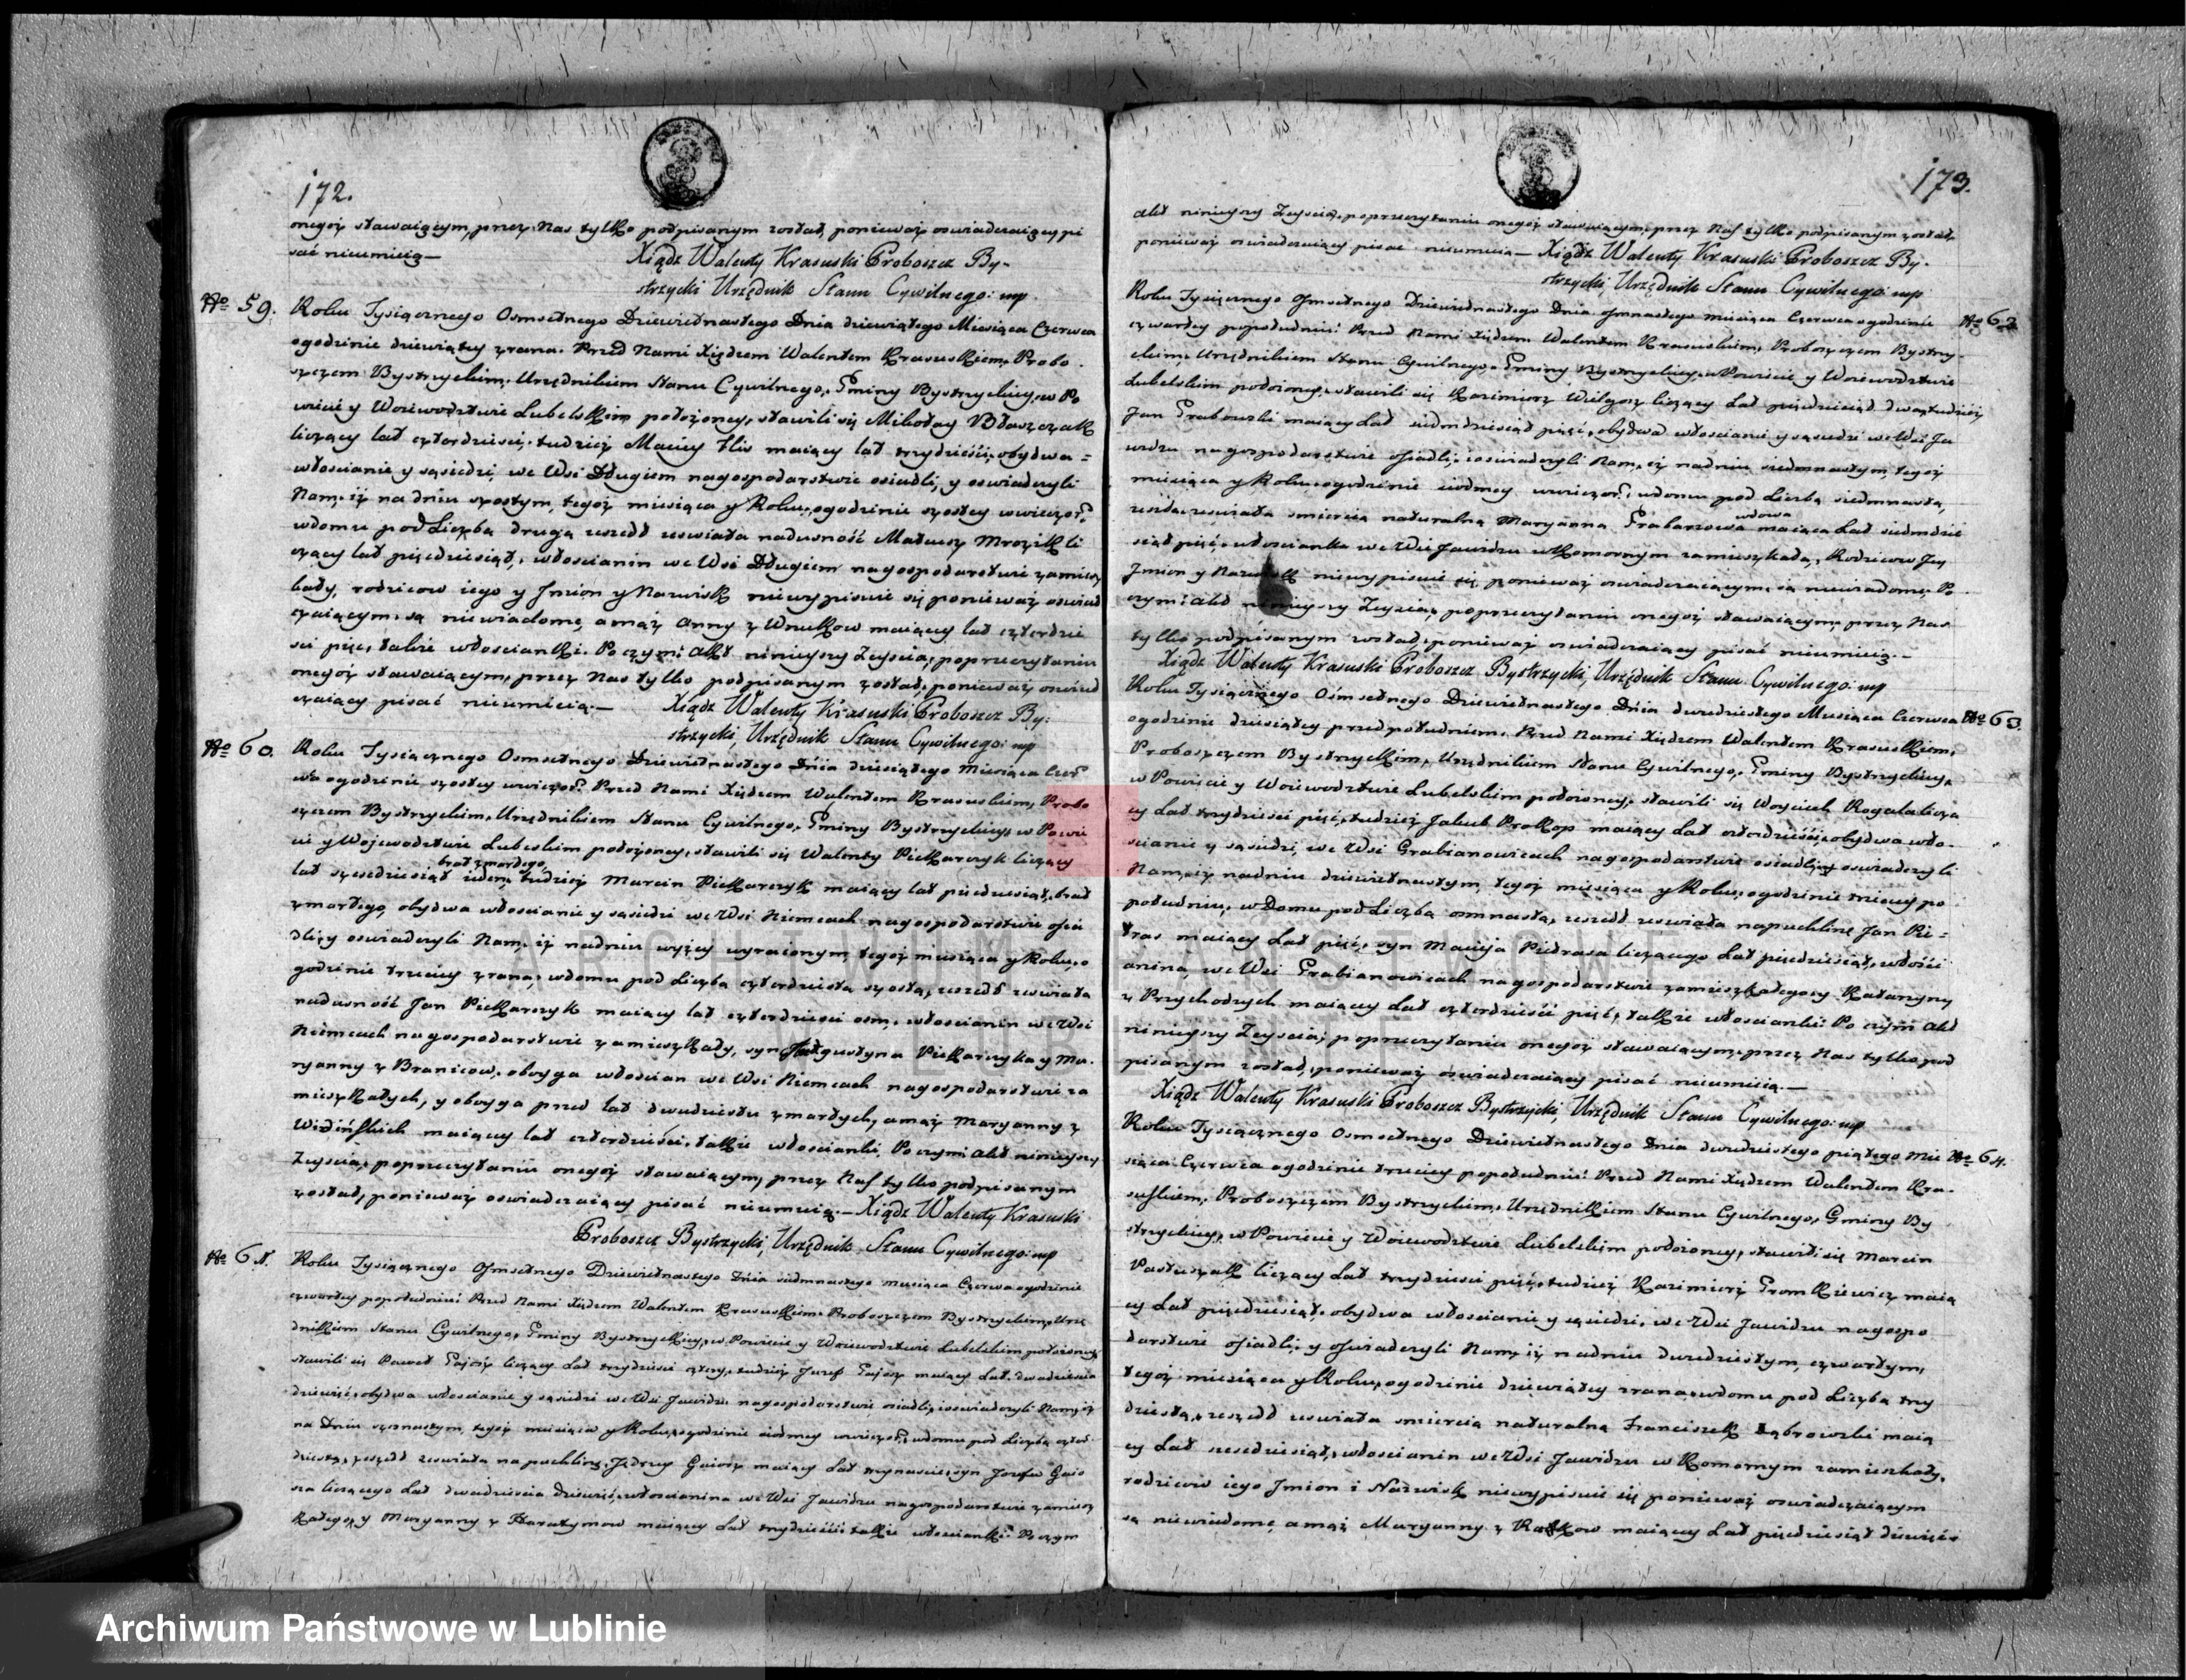 172.
onegoż stawaiącym, przez Nas tylko podpisanym został, ponieważ oswiadczaiący pi
sać nieumieią—
Xiądz Walenty Krasuski Proboszcz By-
strzycki Urzędnik Stanu Cywilnego: mp
No 59.
Roku Tysiącznego Osmsetnego Dziewietnastego Dnia dziewiątego Miesiąca Czerwca
ogodzinie dziewiątey zrana. Przed Nami Xiędzem Walentem Krasuskiem, Probo
szczem Bystrzyckim, Urzędnikiem Stanu Cywilnego, Gminy Bystrzyckiey, w Po
wiecie y Woiewodztwie Lubelskim położoney, stawili się Mikołay Błaszczak
liczący lat czterdzieści, tudzież Maciey Flis maiący lat trzydzieści, obydwa=
włoscianie y sąsiedzi, we Wsi Długiem nagospodarstwie osiedli, y oswiadczyli
Nam, iż na dniu szostym, tegoż miesiąca y Roku, ogodzinie szostey wwieczor
wdomu pod Liczbą drugą zszedł zeswiata nadusność Mateusz Mrozik li
czący lat pięcdziesiąt, włoscianin we Wsi Długiem nagospodarstwie zamiesz
kały, rodzicow iego y Jmion y Nazwisk niewypisuie się ponieważ oswiad
czaiącym, są niewiadome, amąż Anny z Wnukow maiącey lat czterdzie
sci pięc, także włoscianki. Poczym: Akt ninieyszy Zeyscia, poprzeczytaniu
onegoż stawaiącym, przez Nas tylko podpisanym został, ponieważ oswiad
czaiący pisać nieumieią.—
Xiądz Walenty Krasuski Proboszcz By:
strzycki, Urzędnik Stanu Cywilnego: mp
No 60.
Roku Tysiącznego Osmsetnego Dziewietnastego Dnia dziesiątego Miesiąca Czer
wca ogodzinie szostey wwieczor Przed Nami Xiędzem Walentem Krasuskiem, Probo
szczem Bystrzyckim, Urzędnikiem Stanu Cywilnego, Gminy Bystrzyckiey w Powie
cie y Wojewodztwie Lubelskim położoney, stawili się Walenty Piekarczyk liczący
brat zmarłego,
lat szescdziesiąt ieden, tudzież Marcin Piekarczyk maiący lat pięcdziesiąt, brat
zmarłego, obydwa włoscianie y sąsiedzi we Wsi Niemcach nagospodarstwie osia
dli, y oswiadczyli Nam, iż nadniu wyżey wyrażonym, tegoż miesiąca y Roku, o
godzinie trzeciey zrana, wdomu pod Liczbą czterdziestą szostą, zszedł zeswiata
nadusność Jan Piekarczyk maiący lat czterdziesci osm, włoscianin we Wsi
Niemcach nagospodarstwie zamieszkały, syn Augustyna Piekarczyka y Ma-
ryanny z Branicow, oboyga włoscian we Wsi Niemcach nagospodarstwie za
mieszkałych, y oboyga przed lat dwudziestu zmarłych, amąż Maryanny z
maiącey lat czterdzieści, także włoscianki, Poczym: Akt ninieyszy
Zeyscia, poprzeczytaniu onegoż stawaiącym, przez Nas tylko podpisanym
został, ponieważ oswiadczaiący pisać nieumieią.—Xiądz Walenty Krasuski
Proboszcz Bystrzycki, Urzędnik Stanu Cywilnego: mp
No 61.
Roku Tysiącznego Osmsetnego Dziewietnastego Dnia siedmnastego miesiąca Czerwca ogodzinie
czwartey popołudniu: Przed Nami Xiędzem Walentem Krasuskiem, Proboszczem Bystrzyckim, Urzę
dnikiem Stanu Cywilnego, Gminy Bystrzyckiey, w Powiecie y Woiewodztwie Lubelskim położoney
stawili się Paweł Gaiosz liczący Lat trzydziesci cztery, tudzież Jozef Gaiosz maiący Lat dwadziescia
dziewięć, obydwa włoscianie y sąsiedzi we Wsi Jawidzu nagospodarstwie osiadli, ioswiadczyli Nam, iż
na Dniu szesnastym, tegoż miesiąca y Roku, ogodzinie siodmey wwieczor, wdomu pod Liczbą czter
dziestą, zszedł zeswiata na puchlinę, Jędrzey Gaiosz maiący Lat trzynascie, syn Jozefa Gaio
sza liczącego Lat dwadziescia Dziewięć, włoscianina we Wsi Jawidzu nagospodarstwie zamiesz
kałego, y Maryanny z Haratymow maiącey Lat trzydzieści także włoscianki: Poczym
173.
Akt ninieyszy Zeyscia, poprzeczytaniu onegoż stawaiącym, przez Nas tylko podpisanym został,
ponieważ oswiadczaiący pisać nieumieią— Xiądz Walenty Krasuski Proboszcz By-
strzycki, Urzędnik Stanu Cywilnego: mp
No 62
Roku Tysiącznego Osmsetnego Dziewietnastego Dnia osmnastego miesiąca Czerwca ogodzinie
czwartey popołudniu: Przed Nami Xiędzem Walentem Krasuskim, Proboszczem Bystrzy-
ckim, Urzędnikiem Stanu Cywilnego, Gminy Bystrzyckiey, w Powiecie y Woiewodztwie
Lubelskim położoney, stawili się Kazimierz Wielgosz liczący Lat pięcdziesiąt dwa, tudzież
Jan Grabowski maiący Lat siedmdziesiąt pięć, obydwa włoscianie y sąsiedzi we Wsi Ja
widzu nagospodarstwie osiadli, ioswiadczyli Nam, iż nadniu siedmnastym, tegoż
miesiąca y Roku, ogodzinie siodmey wwieczor, wdomu pod Liczbą siedmnastą,
wdowa
zeszła zeswiata smiercią naturalną Maryanna Grabarzowa maiąca Lat siedmdzie
siąt pięć, włoscianka we Wsi Jawidzu wKomornym zamieszkała, Rodzicow Jey
Jmion y Nazwisk niewypisuie się, ponieważ oswiadczaiącym, są niewiadome, Po
czym: Akt ninieyszy Zeyscia, poprzeczytaniu onegoż stawaiącym, przez Nas
tylko podpisanym został, ponieważ oswiadczaiący pisać nieumieią.—
Xiądz Walenty Krasuski Proboszcz Bystrzycki, Urzędnik Stanu Cywilnego: mp
No 63.
Roku Tysiącznego Osmsetnego Dziewietnastego Dnia dwudziestego Miesiąca Czerwca
ogodzinie dziesiątey przedpołudniem. Przed Nami Xiędzem Walentem Krasuskiem,
Proboszczem Bystrzyckim, Urzędnikiem Stanu Cywilnego, Gminy Bystrzyckiey,
w Powiecie y Woiewodztwie Lubelskim położoney, stawili się Woyciech Rogala licza
cy Lat trzydziesci pięć, tudzież Jakub Prokop maiący Lat czterdzieści, obydwa wło-
scianie y sąsiedzi, we Wsi Grabianowicach nagospodarstwie osiadli, y oswiadczyli
Nam, iż nadniu dziewietnastym, tegoż miesiąca y Roku, ogodzinie trzeciey po
południu, w Domu pod Liczbą osmnastą, zszedł zeswiata napuchlinę Jan Pie=
tras maiący Lat pięć, syn Macieja Pietrasa liczącego Lat pięcdziesiąt, włości
anina, we Wsi Grabianowicach nagospodarstwie zamieszkałego, y Katarzyny
z Przychodzych maiącey Lat czterdzieści pięć, także włoscianki: Poczym Akt
ninieyszy Zeyscia, poprzeczytaniu onegoż stawaiącym, przez Nas tylko pod
pisanym został, ponieważ oswiadczaiący pisać nieumieią.—
Xiądz Walenty Krasuski Proboszcz Bystrzycki, Urzędnik Stanu Cywilnego: mp
No 64.
Roku Tysiącznego Osmsetnego Dziewietnastego Dnia dwudziestego piątego Mie
siąca Czerwca ogodzinie trzeciey popołudniu: Przed Nami Xiędzem Walentem Kra-
suskiem, Proboszczem Bystrzyckim, Urzędnikiem Stanu Cywilnego, Gminy By
strzyckiey, w Powiecie y Woiewodztwie Lubelskim położoney, stawili się Marcin
Pastuszak liczący Lat trzydziesci pięć, tudzież Kazimierz Gromkiewicz maią
cy Lat pięcdziesiąt, obydwa włoscianie y sąsiedzi, we Wsi Jawidzu nagospo
darstwie osiadli, y oswiadczyli Nam, iż nadniu dwudziestym czwartym,
tegoż miesiąca y Roku, ogodzinie dziewiątey zrana, wdomu pod Liczbą trzy
dziestą, zszedł zeswiata smiercią naturalną Franciszek Dąbrowski maią
cy Lat szescdziesiąt, włoscianin we Wsi Jawidzu w Komornym zamieszkały,
rodzicow iego Jmion i Nazwisk niewypisuie się ponieważ oswiadczaiącym
są niewiadome, amąż Maryanny z maiącey Lat pięcdziesiąt dziewięć
ARCHIWUM PAŃSTWOWE
LUBLINIE
Archiwum Państwowe w Lublinie